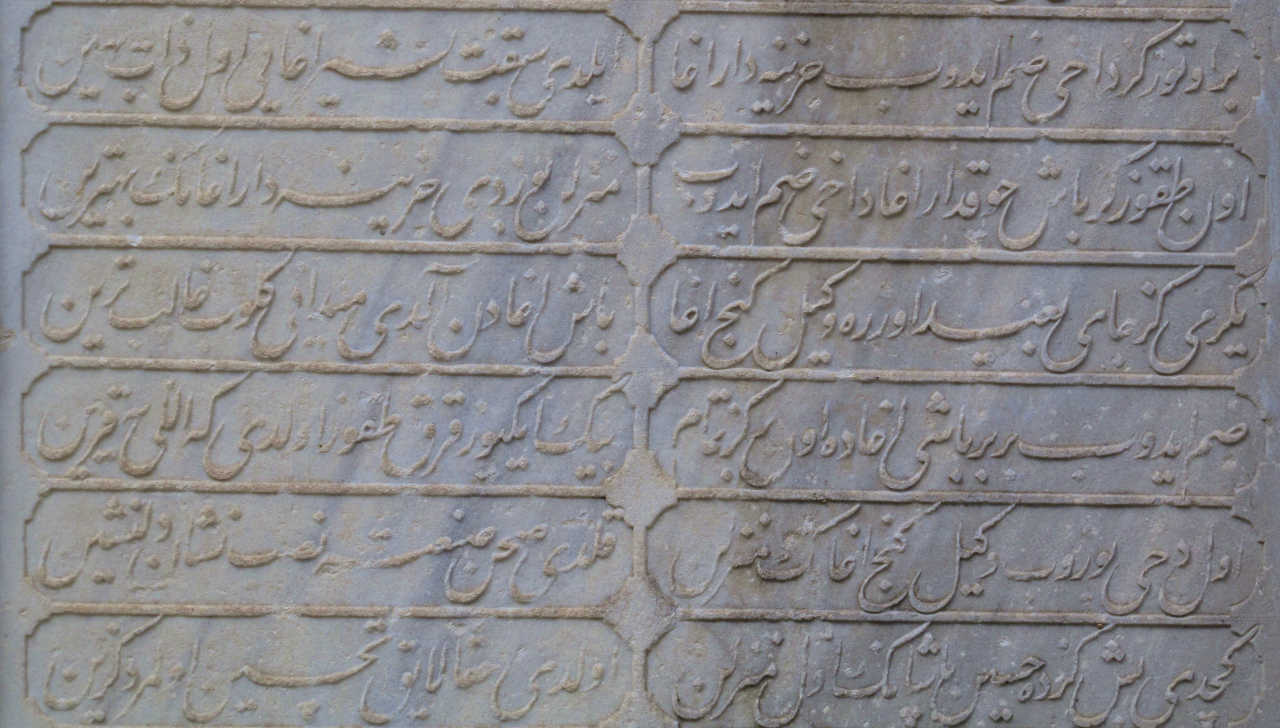 بر اوتوز کز داخی ضم ایدوب خزینه دار اغا
ایلدی سبقت بشیر اغایی اول ذات بهین
اون طقوز کز باش چوقدار اغا داخی ضم ایدوب
منزلن بوزدی خزینه دار اغانك بهترین
یکرمی کز جای بعید اوزره وکیل کنج اغا
باش اغادن آلدی میدانی کلوب غالب ترین
ضم ایدوب بربر باشی اغاده اون بش کز تمام
بیك ایکیوز قرق طقوز اولدی که اللی یه قرین
اول دخی بوزوب وکیل کنج اغانك منزلین
قلدی صحن صنعته نصب نشان دلنشین
کچدی بش کزده حسین پاشانك اول منزلن
اولدی حقا لایق تحسین اول مرد کزین